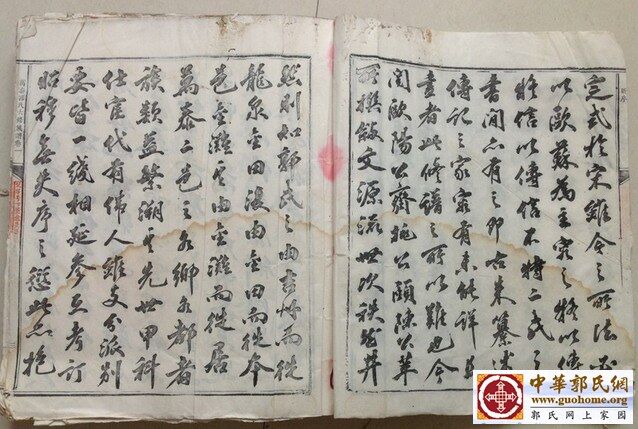 定式於宋雖今之所法必
以歐蘇為主家之特以傳
將信以傳信不特二氏之
書間亦有之即古來纂述
傳記之家家有素能詳其
書者此修譜之所以難也今
閱歐陽公齋公頤陳公華
所撰敘文源流世次秩然井
然則如郭氏之由吉州而徙
龍泉金田後由金田而徙本
邑金灘又由金灘而徙居
萬泰二邑之各鄉各都者
族類益繁溯其先世甲科
仕宦代有偉人雖支分派別
要皆一綫相延參互考訂
昭穆無失序之愆此亦抱
中華郭氏網
www.guohome.org
郭氏网上家园